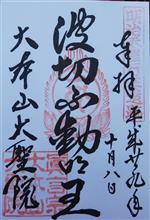 奉拝 平成廿九年
十月八日
波切不動明王
大本山大聖院